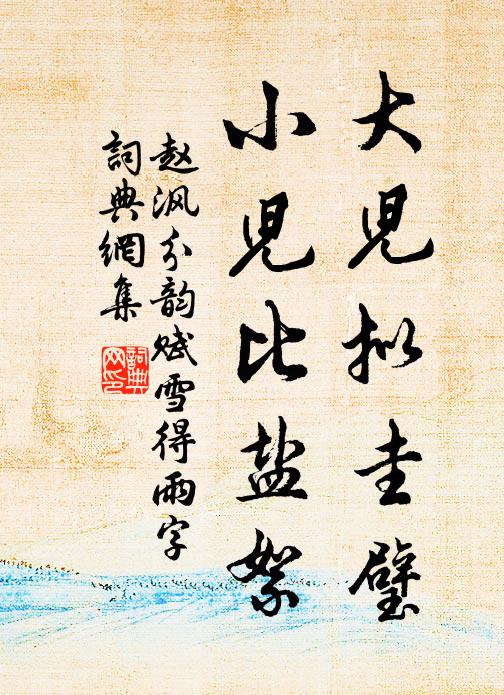 大児拟圭璧
小児比盐絮
赵沨分韵赋雪得雨字
詞典網集
詞典
网印